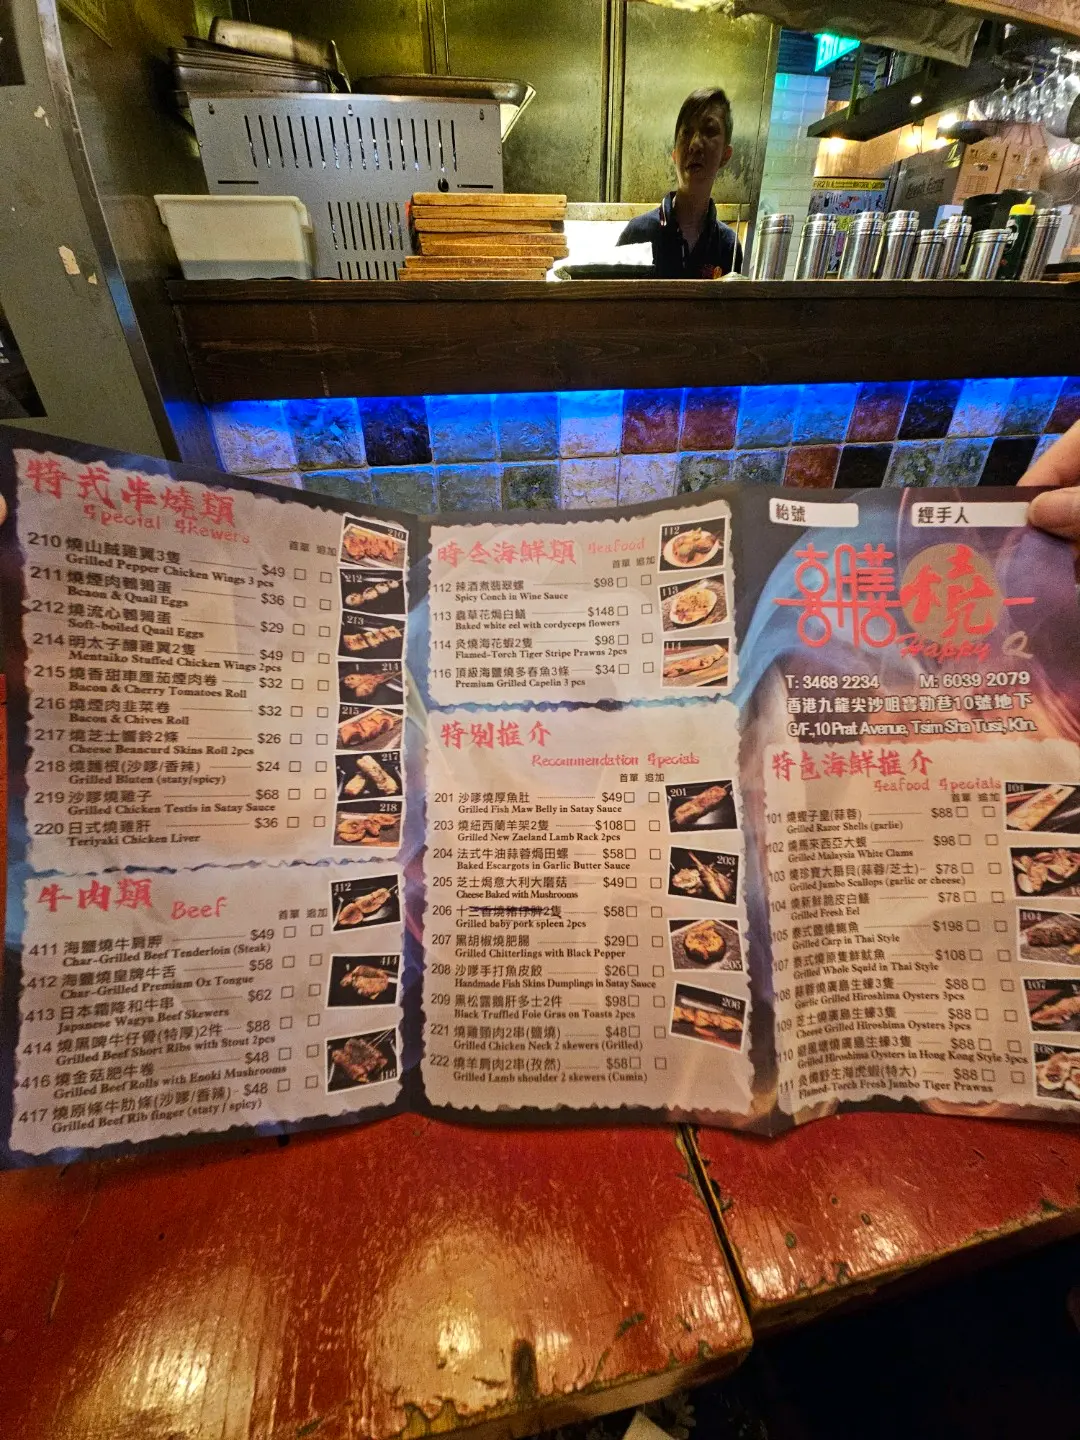 EXIT
特式串燒類
Special Skewers
首單 追加
210 燒山賊雞翼3隻 $49
Grilled Pepper Chicken Wings 3 pcs
211 燒煙肉鵪鶉蛋 $36
Bcaon & Quail Eggs
212 燒流心鵪鶉蛋 $29
Soft-boiled Quail Eggs
214 明太子釀雞翼2隻 $49
Mentaiko Stuffed Chicken Wings 2pcs
215 燒香甜車厘茄煙肉卷 $32
Bacon & Cherry Tomatoes Roll
216 燒煙肉韭菜卷 $32
Bacon & Chives Roll
217 燒芝士響鈴2條 $26
Cheese Beancurd Skins Roll 2pcs
218 燒麵根(沙嗲/香辣) $24
Grilled Bluten (staty/spicy)
219 沙嗲燒雞子 $68
Grilled Chicken Testis in Satay Sauce
220 日式燒雞肝 $36
Teriyaki Chicken Liver
210
212
213
214
215
217
218
牛肉類 Beef
首單 追加
411 海鹽燒牛肩胛 $49
Char-Grilled Beef Tenderloin (Steak)
412 海鹽燒皇牌牛舌 $58
Char-Grilled Premium Ox Tongue
413 日本霜降和牛串 $62
Japanese Wagyu Beef Skewers
414 燒黑啤牛仔骨(特厚)2件 $88
Grilled Beef Short Ribs with Stout 2pcs
416 燒金菇肥牛卷 $48
Grilled Beef Rolls with Enoki Mushrooms
417 燒原條牛肋條(沙嗲/香辣) $48
Grilled Beef Rib finger (staty / spicy)
412
414
416
時令海鮮類 Seafood
首單 追加
112 辣酒煮翡翠螺 $98
Spicy Conch in Wine Sauce
113 蟲草花焗白鱔 $148
Baked white eel with cordyceps flowers
114 灸燒海花蝦2隻 $98
Flamed-Torch Tiger Stripe Prawns 2pcs
116 頂級海鹽燒多春魚3條 $34
Premium Grilled Capelin 3 pcs
112
113
114
特別推介
Recommendation Specials
首單 追加
201 沙嗲燒厚魚肚 $49
Grilled Fish Maw Belly in Satay Sauce
203 燒紐西蘭羊架2隻 $108
Grilled New Zaeland Lamb Rack 2pcs
204 法式牛油蒜蓉焗田螺 $58
Baked Escargots in Garlic Butter Sauce
205 芝士焗意大利大蘑菇 $49
Cheese Baked with Mushrooms
206 十三香燒豬仔脾2隻 $58
Grilled baby pork spleen 2pcs
207 黑胡椒燒肥腸 $29
Grilled Chitterlings with Black Pepper
208 沙嗲手打魚皮餃 $26
Handmade Fish Skins Dumplings in Satay Sauce
209 黑松露鵝肝多士2件 $98
Black Truffled Foie Gras on Toasts 2pcs
221 燒雞頸肉2串(鹽燒) $48
Grilled Chicken Neck 2 skewers (Grilled)
222 燒羊肩肉2串(孜然) $58
Grilled Lamb shoulder 2 skewers (Cumin)
201
203
205
206
枱號
經手人
囍膳燒
Happy Q
T: 3468 2234 M: 6039 2079
香港九龍尖沙咀寶勒巷10號地下
G/F, 10 Prat Avenue, Tsim Sha Tusi, Kln.
特色海鮮推介
Seafood Specials
首單 追加
101 燒蟶子皇(蒜蓉) $88
Grilled Razor Shells (garlic)
102 燒馬來西亞大蜆 $98
Grilled Malaysia White Clams
103 燒珍寶大扇貝(蒜蓉/芝士) $78
Grilled Jumbo Scallops (garlic or cheese)
104 燒新鮮脆皮白鱔 $78
Grilled Fresh Eel
105 泰式鹽燒鯇魚 $198
Grilled Carp in Thai Style
107 泰式燒原隻鮮魷魚 $108
Grilled Whole Squid in Thai Style
108 蒜蓉燒廣島生蠔3隻 $88
Garlic Grilled Hiroshima Oysters 3pcs
109 芝士燒廣島生蠔3隻 $88
Cheese Grilled Hiroshima Oysters 3pcs
110 避風塘燒廣島生蠔3隻 $88
Grilled Hiroshima Oysters in Hong Kong Style 3pcs
111 灸燒野生海虎蝦(特大) $88
Flamed-Torch Fresh Jumbo Tiger Prawns
101
104
107
108